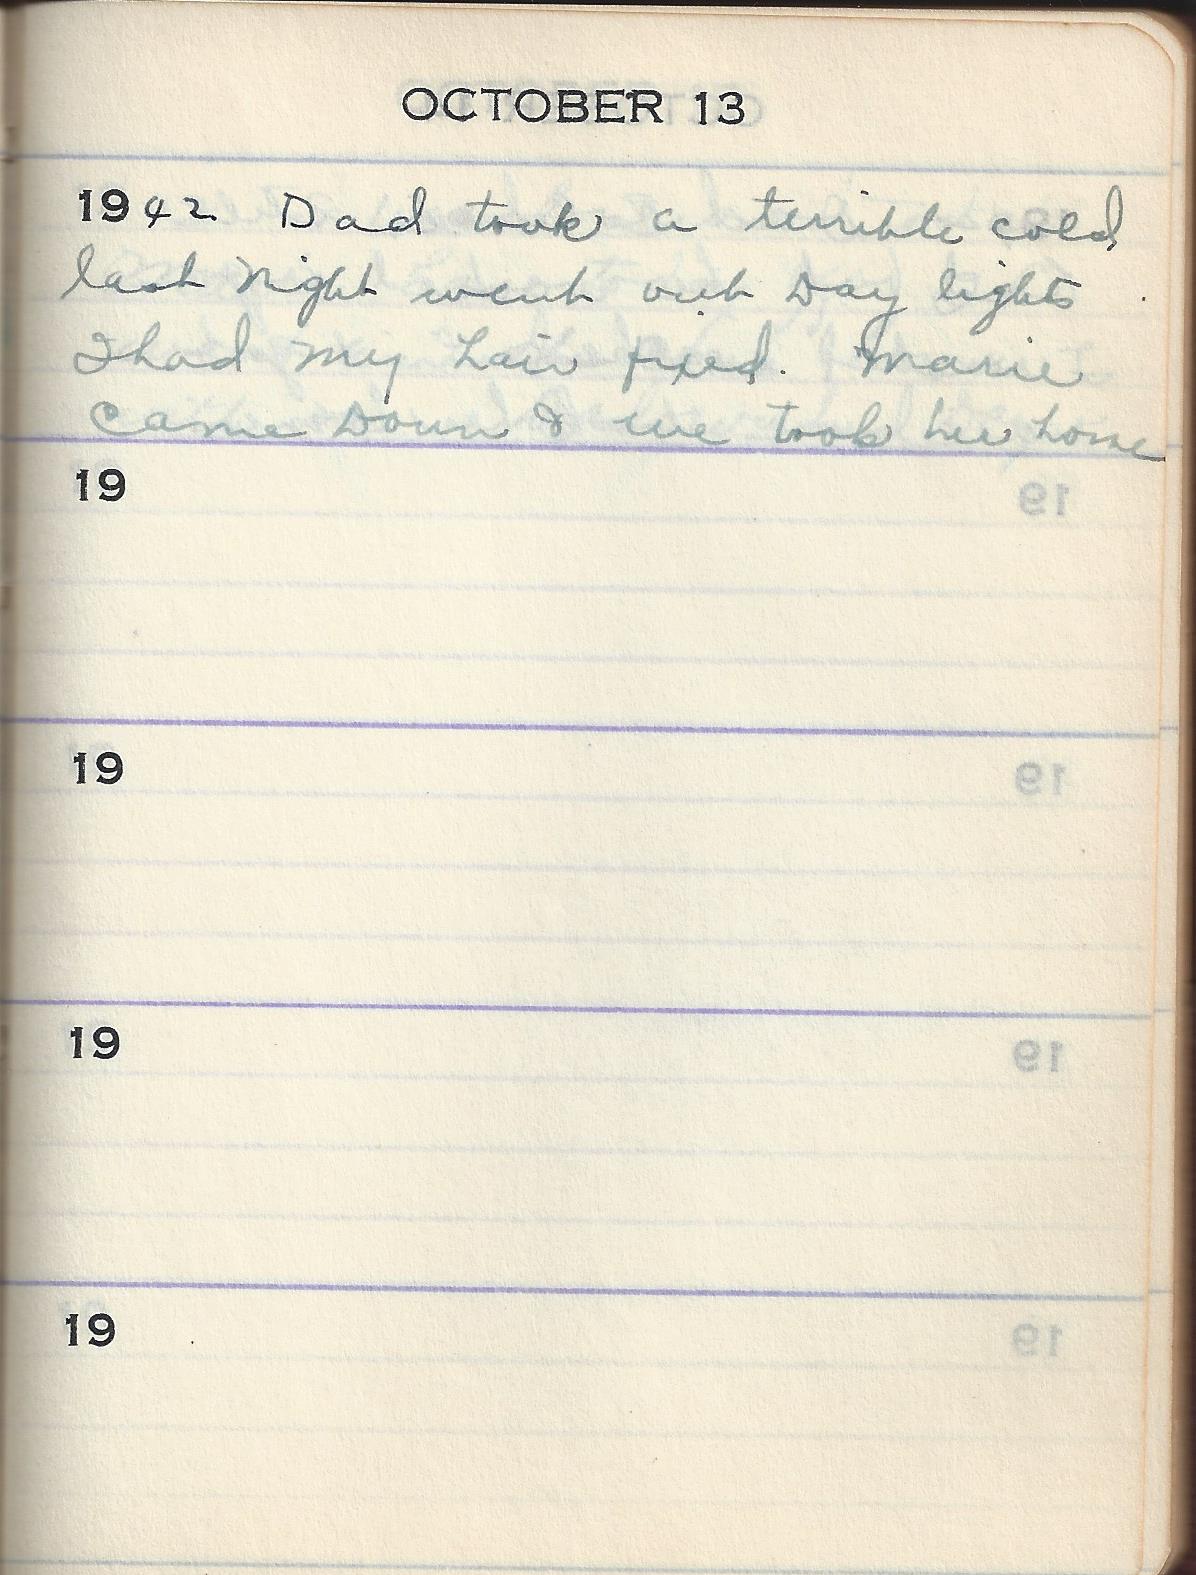 OCTOBER 13
1942 Dad took a terrible cold
last night went out Day lights
I had my hair fixed. Marie
came Down & we took her home
19
19
19
19